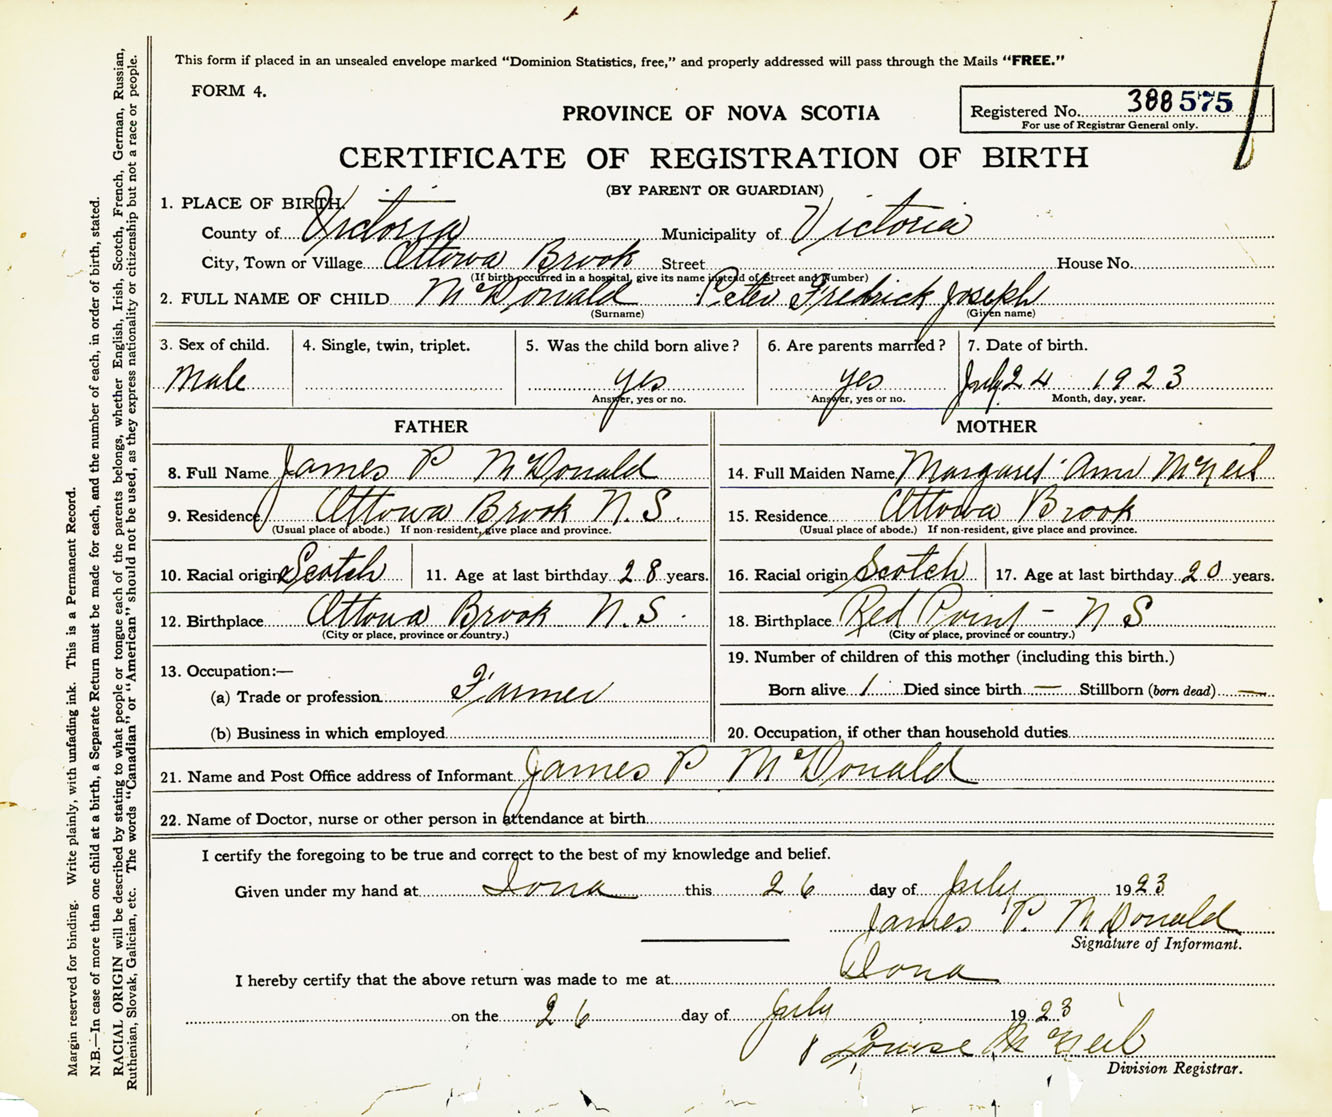 This form if placed in an unsealed envelope marked "Dominion Statistics, free," and properly addressed will pass through the Mails "FREE."
FORM 4.
Registered No. 388575
For use of Registrar General only.
PROVINCE OF NOVA SCOTIA
CERTIFICATE OF REGISTRATION OF BIRTH
(BY PARENT OR GUARDIAN)
1. PLACE OF BIRTH.
County of Victoria Municipality of Victoria
City, Town or Village Ottowa Brook Street House No.
(If birth occurred in a hospital, give its name instead of Street and Number)
2. FULL NAME OF CHILD McDonald Peter Fredrick Joseph
(Surname) (Given name)
3. Sex of child. 4. Single, twin, triplet. 5. Was the child born alive? 6. Are parents married? 7. Date of birth.
Male yes yes July 24 1923
Answer, yes or no. Answer, yes or no. Month, day, year.
FATHER
8. Full Name James P McDonald
9. Residence Ottowa Brook N.S.
(Usual place of abode.) If non-resident, give place and province.
10. Racial origin Scotch 11. Age at last birthday 28 years.
12. Birthplace Ottowa Brook N.S.
(City or place, province or country.)
13. Occupation:—
(a) Trade or profession Farmer
(b) Business in which employed
MOTHER
14. Full Maiden Name Margaret Ann McNeil
15. Residence Ottowa Brook
(Usual place of abode.) If non-resident, give place and province.
16. Racial origin Scotch 17. Age at last birthday 20 years.
18. Birthplace Red Point – N S
(City or place, province or country.)
19. Number of children of this mother (including this birth.)
Born alive 1 Died since birth — Stillborn (born dead) —
20. Occupation, if other than household duties
21. Name and Post Office address of Informant James P McDonald
22. Name of Doctor, nurse or other person in attendance at birth
I certify the foregoing to be true and correct to the best of my knowledge and belief.
Given under my hand at Iona this 26 day of July 1923
James P. McDonald
Signature of Informant.
I hereby certify that the above return was made to me at Iona
on the 26 day of July 1923
Louise McNeil
Division Registrar.
Margin reserved for binding. Write plainly, with unfading ink. This is a Permanent Record.
N.B.—In case of more than one child at a birth, a Separate Return must be made for each, and the number of each, in order of birth, stated.
RACIAL ORIGIN will be described by stating to what people or tongue each of the parents belongs, whether English, Irish, Scotch, French, German, Russian,
Ruthenian, Slovak, Galician, etc. The words "Canadian" or "American" should not be used, as they express nationality or citizenship but not a race or people.